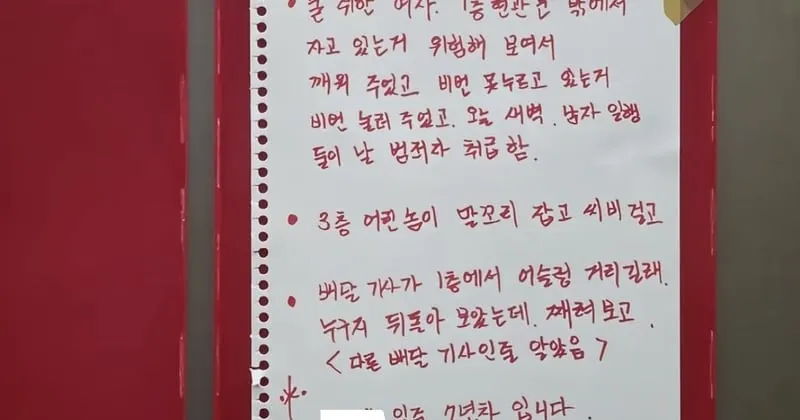 • 술 취한 여자. 1층 현관문 밖에서
자고 있는거 위험해 보여서
깨워 주었고 비번 못누르고 있는거
비번 눌러 주었고. 오늘 새벽. 남자 일행
들이 날 범죄자 취급함.
• 3층 어린놈이 말꼬리 잡고 씨비 걸고
• 배달 기사가 1층에서 어슬렁 거리길래.
누구지 뒤돌아 보았는데. 째려보고.
< 다른 배달 기사인줄 알았음 >
※ 입주 7년차 입니다.